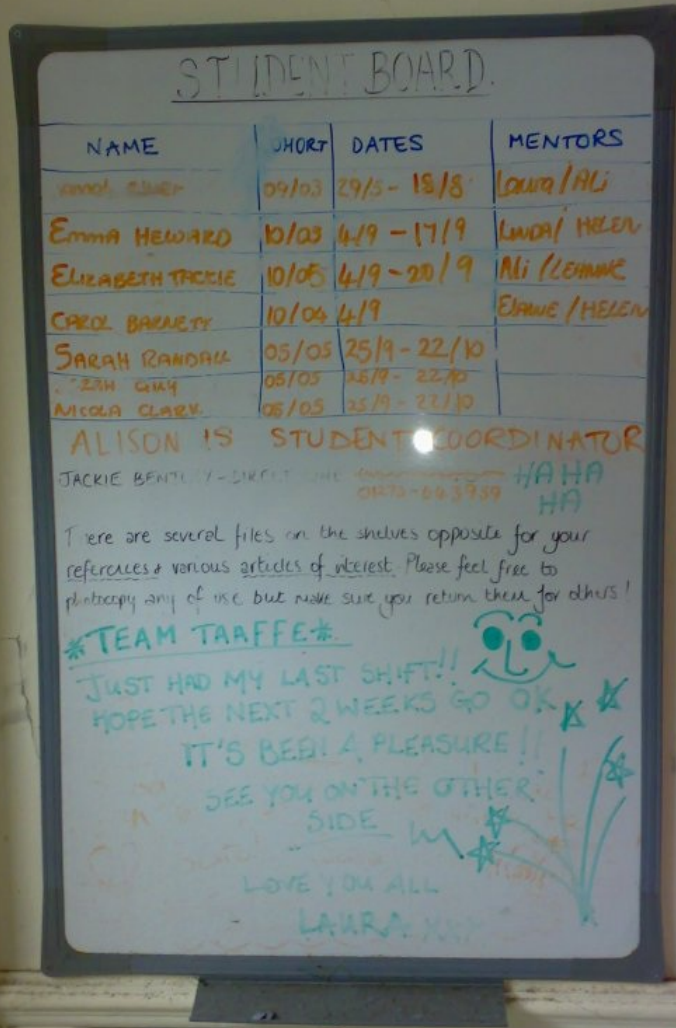 STUDENT BOARD.
NAME COHORT DATES MENTORS
09/03 29/5 - 18/8 Laura/Ali
EMMA HEWARD 10/05 4/9 - 17/9 LINDA/ HELEN
ELIZABETH TACKIE 10/05 4/9 - 20/9 Ali /LEANNE
CAROL BARNETT 10/04 4/9 ELAINE/HELEN
SARAH RANDALL 05/05 25/9 - 22/10
GUY 05/05 25/9 - 22/10
NICOLA CLARK 05/05 25/9 - 22/10
ALISON IS STUDENT COORDINATOR
JACKIE BENTLEY - DIRECT LINE HA HA
HA
There are several files on the shelves opposite for your
references & various articles of interest. Please feel free to
photocopy any of use but make sure you return them for others!
*TEAM TAAFFE*
JUST HAD MY LAST SHIFT!!
HOPE THE NEXT 2 WEEKS GO OK
IT'S BEEN A PLEASURE!!
SEE YOU ON THE OTHER
SIDE
LOVE YOU ALL
LAURA XXX